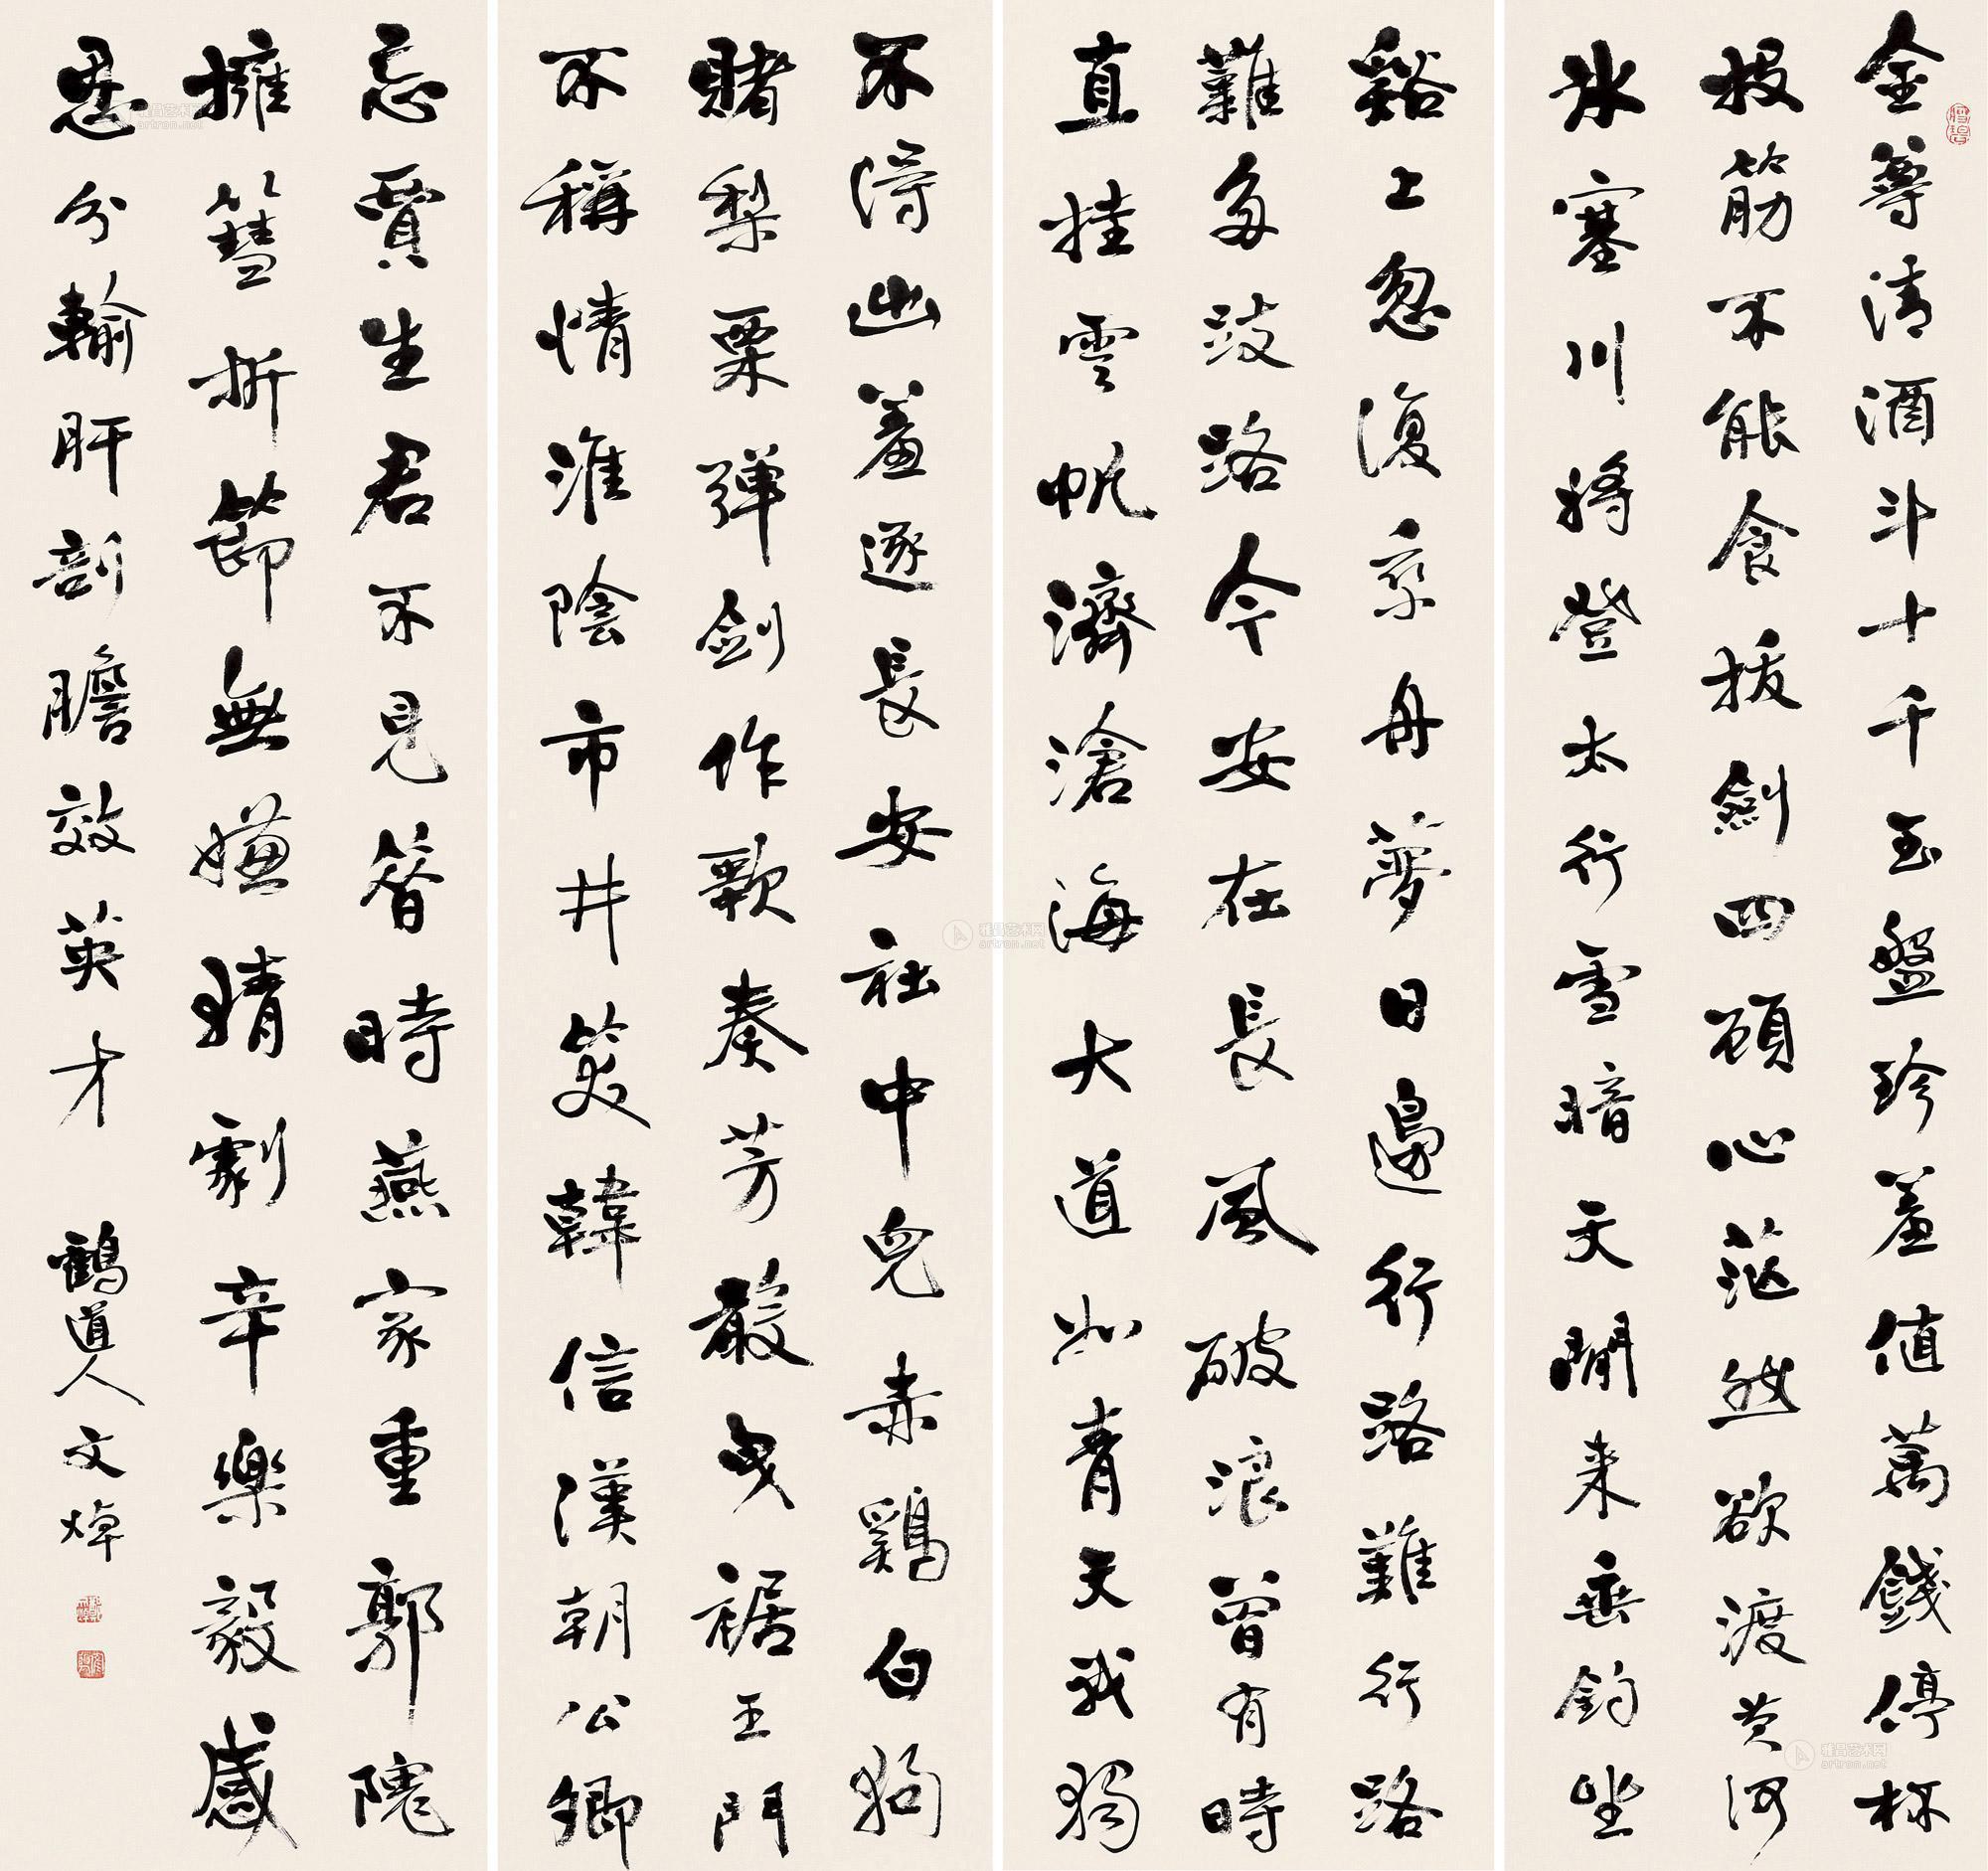 金尊清酒斗十千玉盤珍羞值萬錢停杯
投筯不能食拔劍四顧心茫然欲渡黃河
冰塞川將登太行雪暗天閒来垂釣坐
谿上忽復乘舟夢日邊行路難行路
難多歧路今安在長風破浪曾有時
直挂雲帆濟滄海大道如青天我獨
不得出羞逐長安社中兒赤鷄白狗
賭梨栗彈劍作歌奏芳聲曳裾王門
不稱情淮陰市井笑韓信漢朝公卿
忌賈生君不見昔時燕家重郭隗
擁篲折節無嫌猜劇辛樂毅感
恩分輸肝剖膽效英才
鶴道人文焯
雅昌艺术网
artron.net
雅昌艺术网
artron.net
雅昌艺术网
artron.net